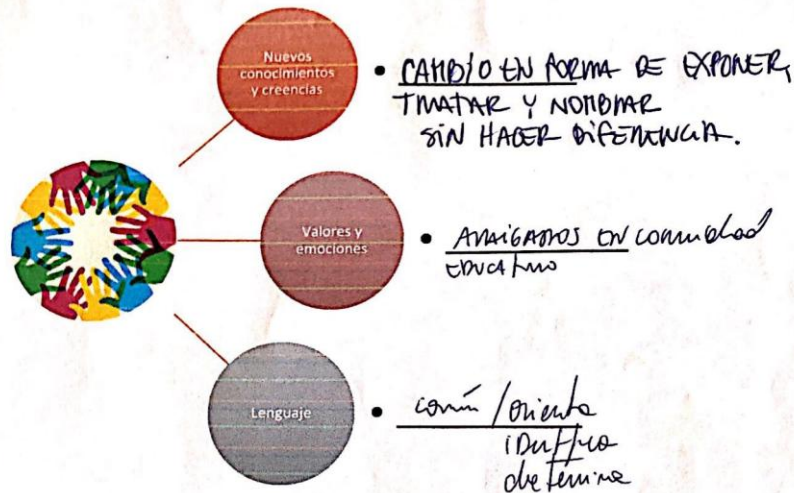 Nuevos
conocimientos
y creencias
• CAMBIO EN FORMA DE EXPONER,
TRATAR Y NOMBRAR
SIN HACER DIFERENCIA.
Valores y
emociones
• ARRAIGADOS EN comunidad
EDUCATIVO
Lenguaje
• común / orienta
identifica
determina